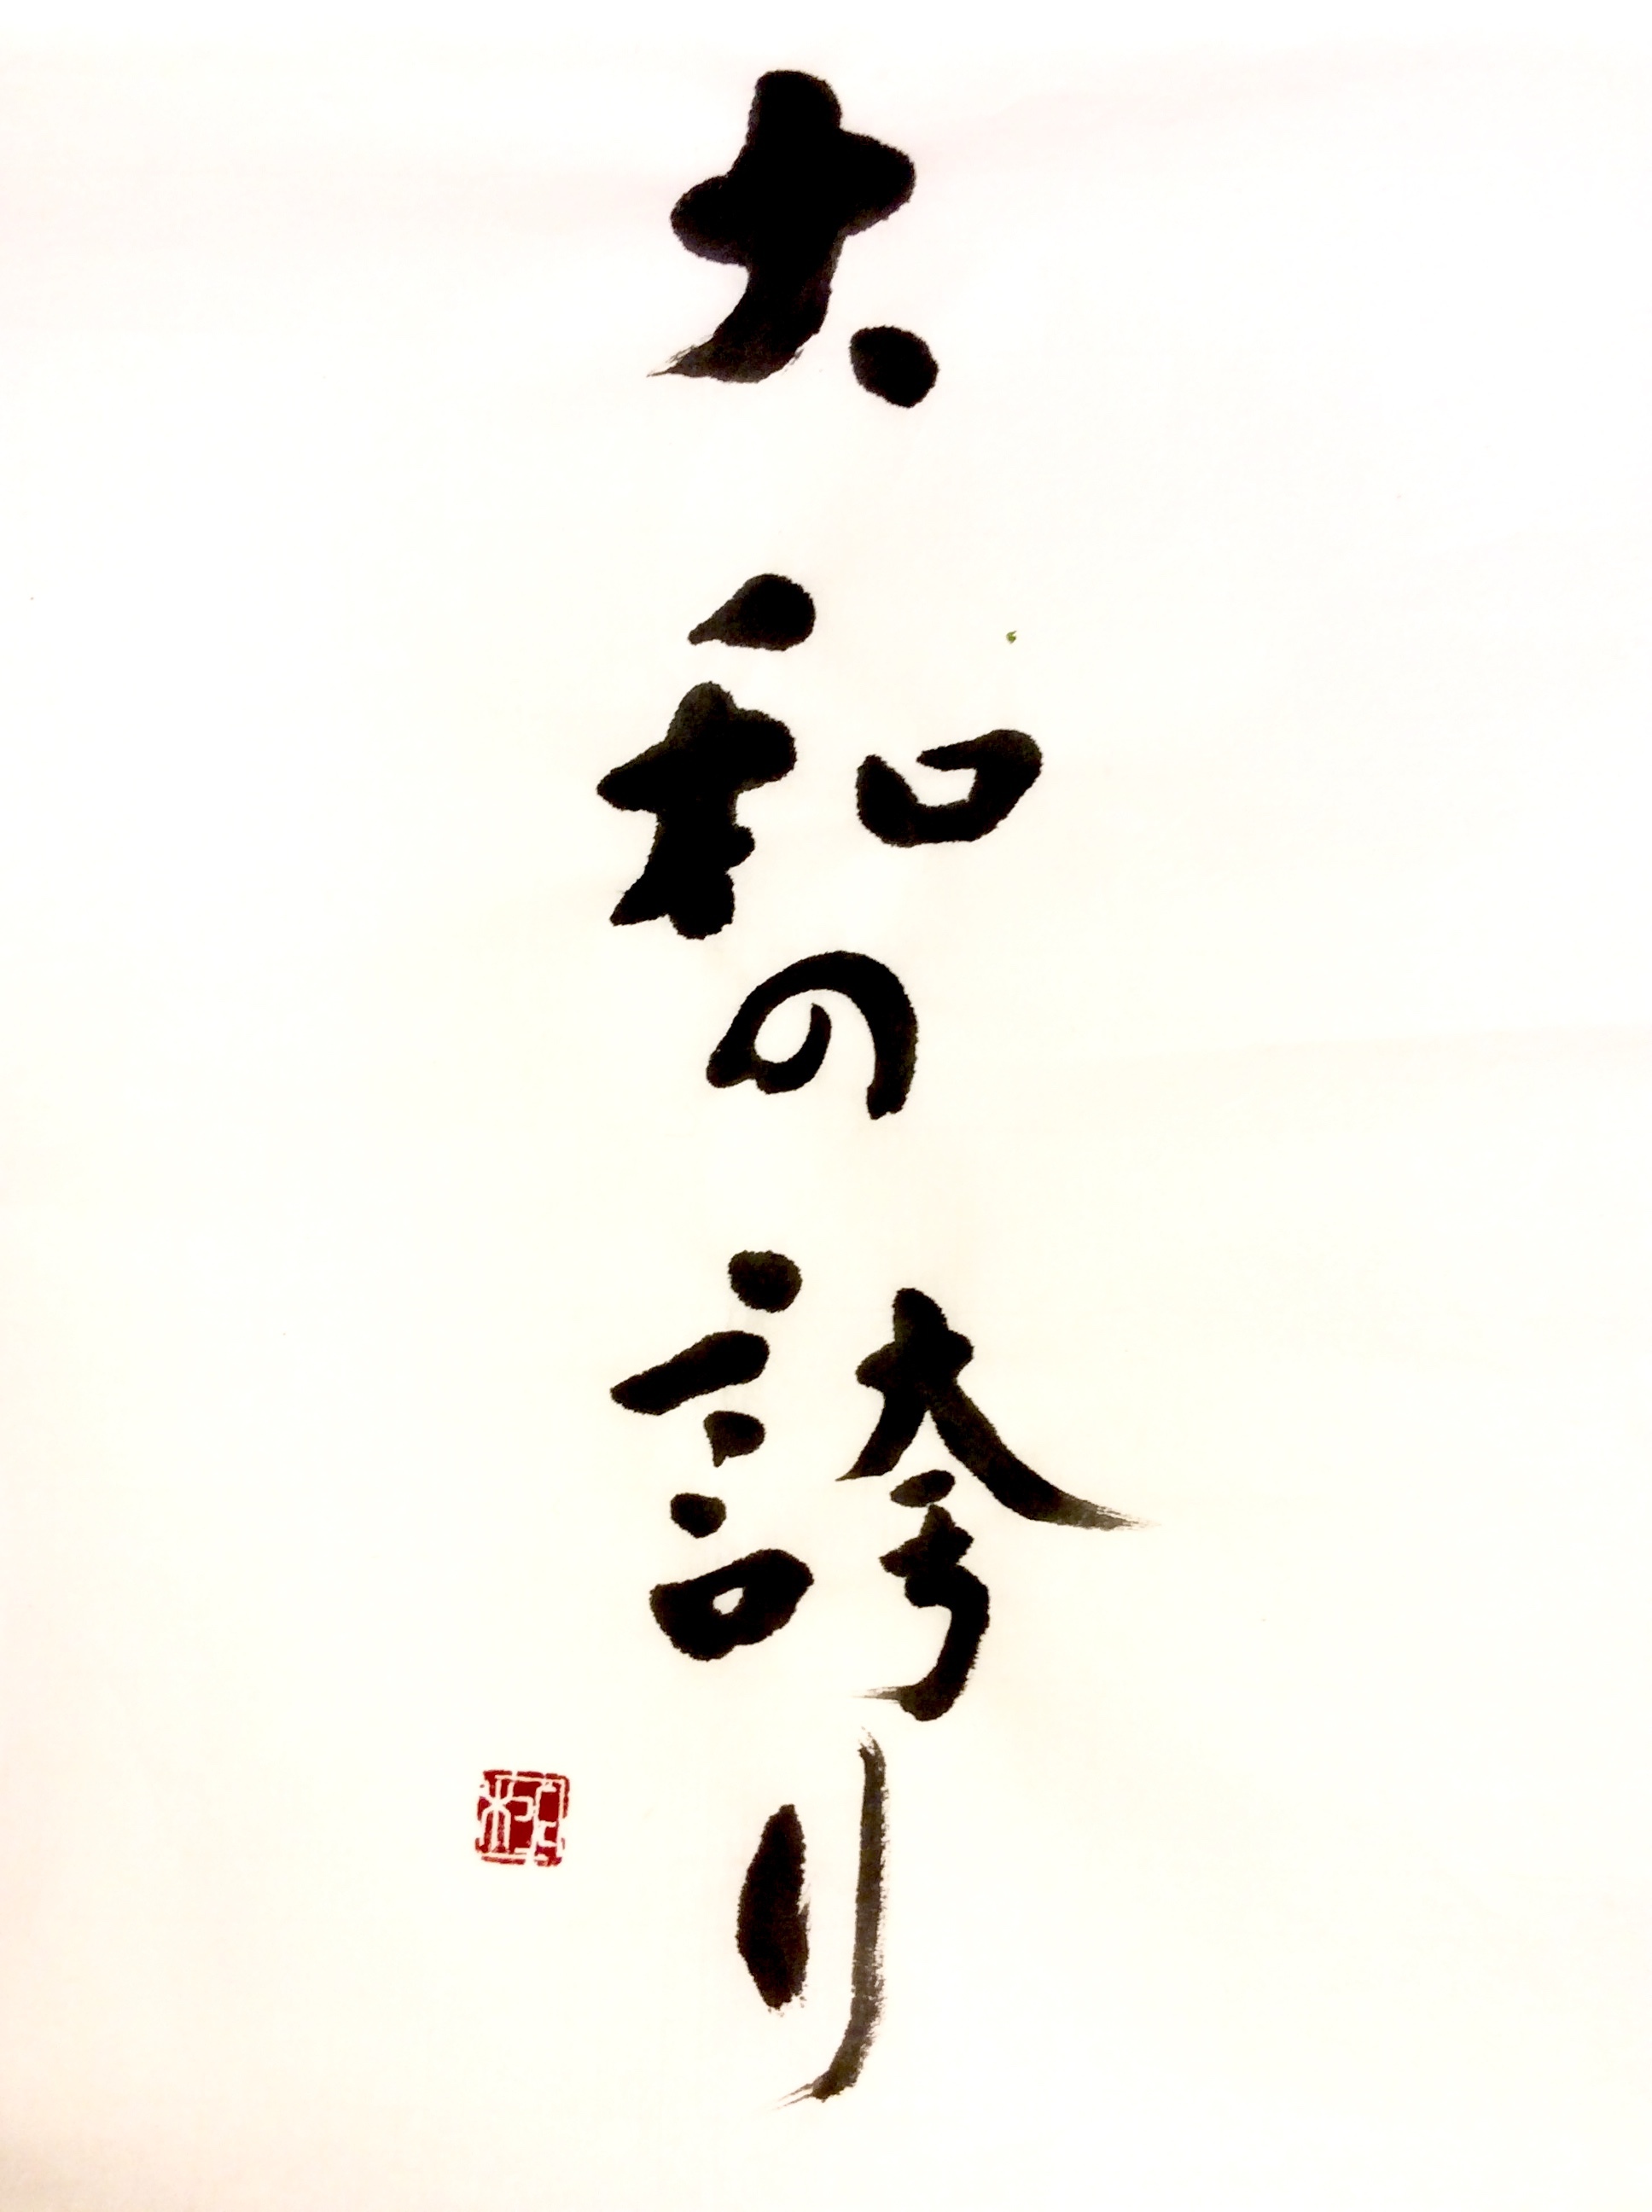 大和の誇り